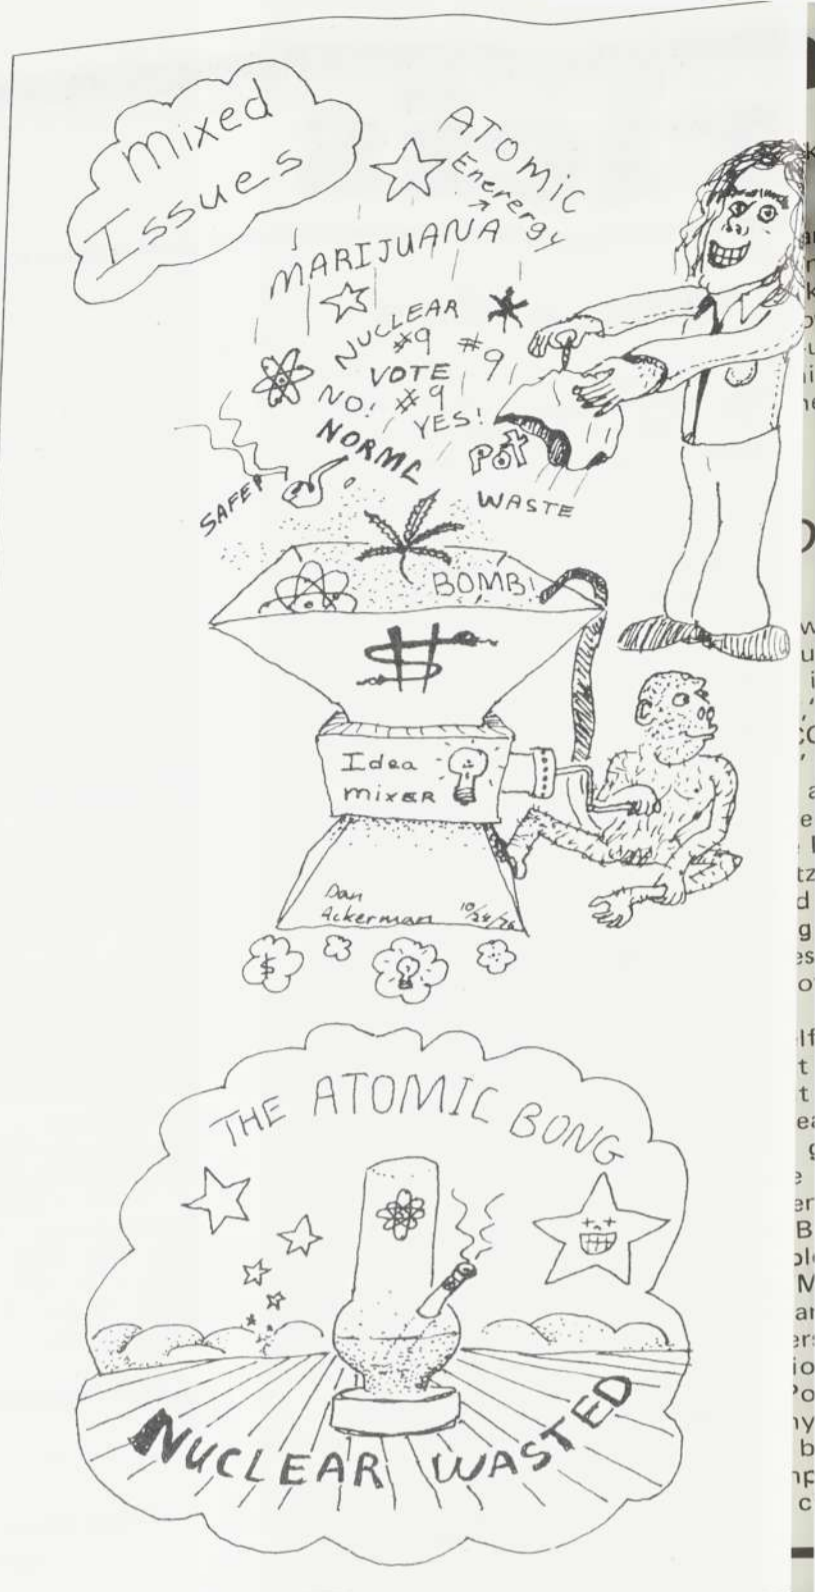 Mixed
Issues
ATOMIC
Enerergy
MARIJUANA
NUCLEAR
#9 #9
VOTE 9
NO! #9
YES!
NORML
POT
WASTE
SAFE?
BOMB!
$
Idea
mixER
Dan
Ackerman 10/28/76
$
THE ATOMIC BONG
NUCLEAR WASTED